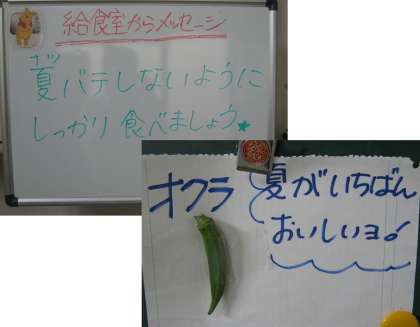 給食室からメッセージ
ナツ
夏バテしないように
しっかり食べましょう★
オクラ
夏がいちばん
おいしいヨ!